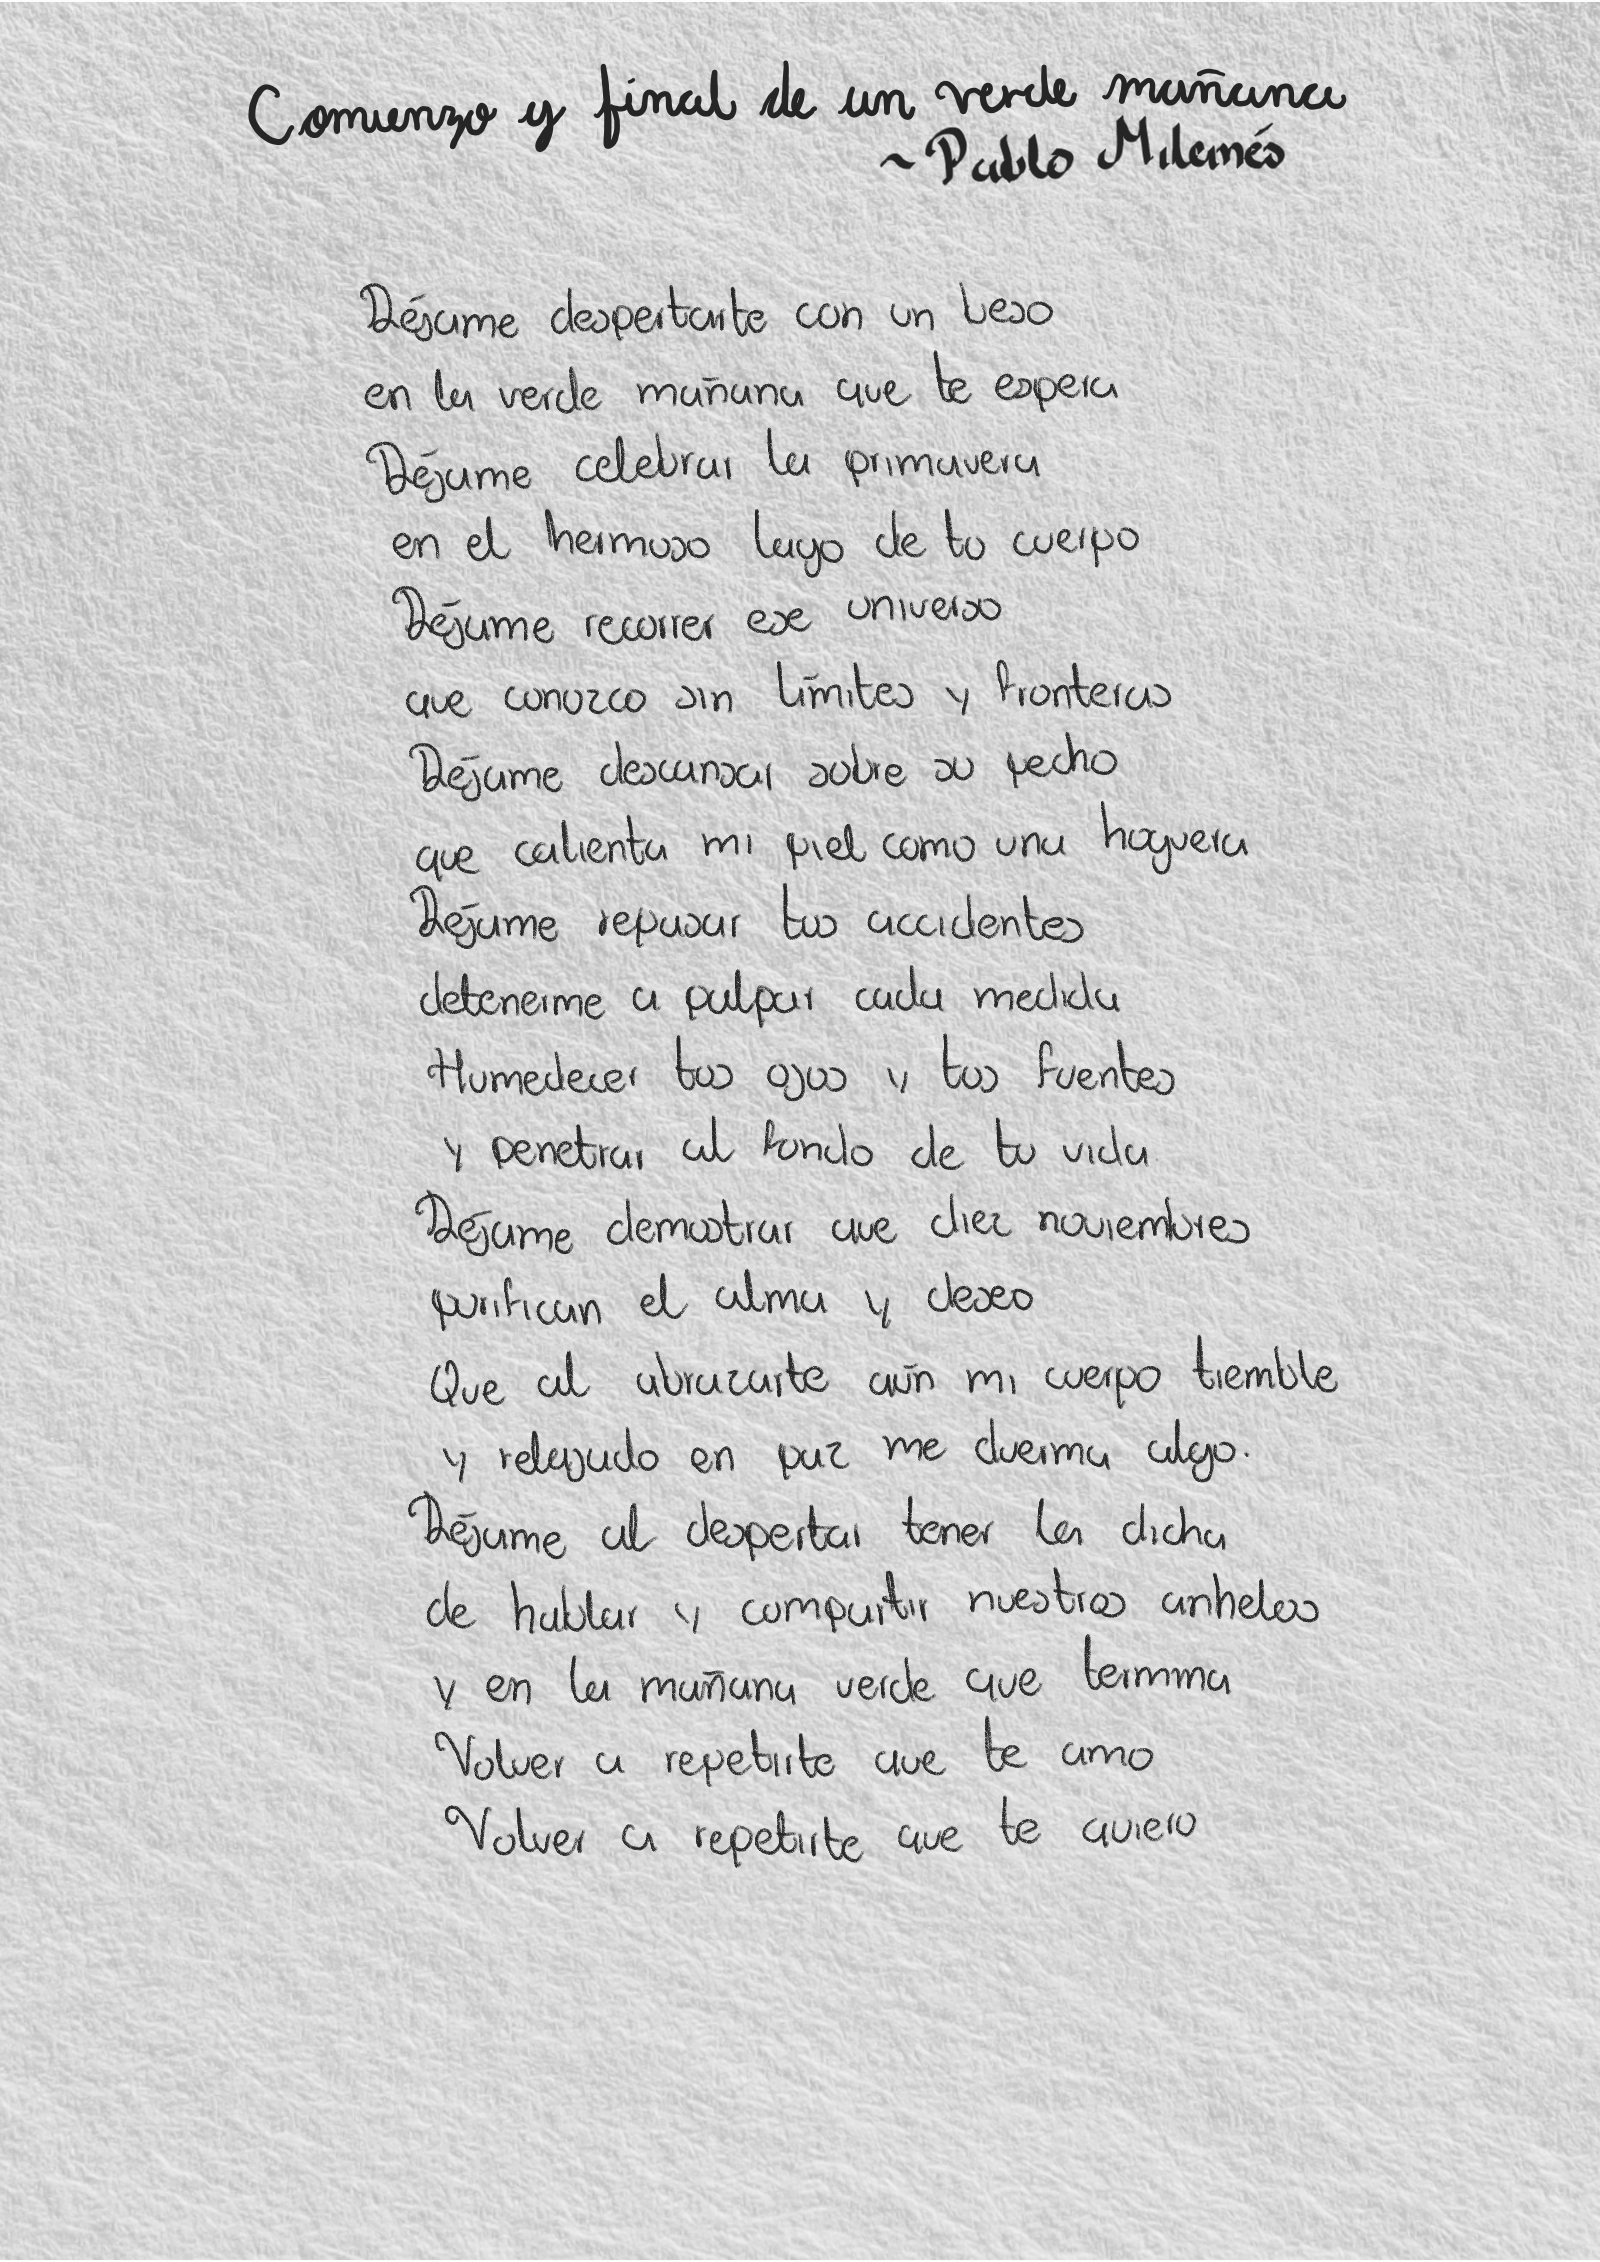 Comienzo y final de un verde mañana
~Pablo Milanés
Déjame despertarte con un beso
en la verde mañana que te espera
Déjame celebrar la primavera
en el hermoso lago de tu cuerpo
Déjame recorrer ese universo
que conozco sin límites y fronteras
Déjame descansar sobre su pecho
que calienta mi piel como una hoguera
Déjame repasar tus accidentes
detenerme a palpar cada medida
Humedecer tus ojos y tus fuentes
y penetrar al fondo de tu vida
Déjame demostrar que diez noviembres
purifican el alma y deseo
Que al abrazarte aún mi cuerpo tiemble
y relajado en paz me duerma algo.
Déjame al despertar tener la dicha
de hablar y compartir nuestros anhelos
y en la mañana verde que termina
Volver a repetirte que te amo
Volver a repetirte que te quiero